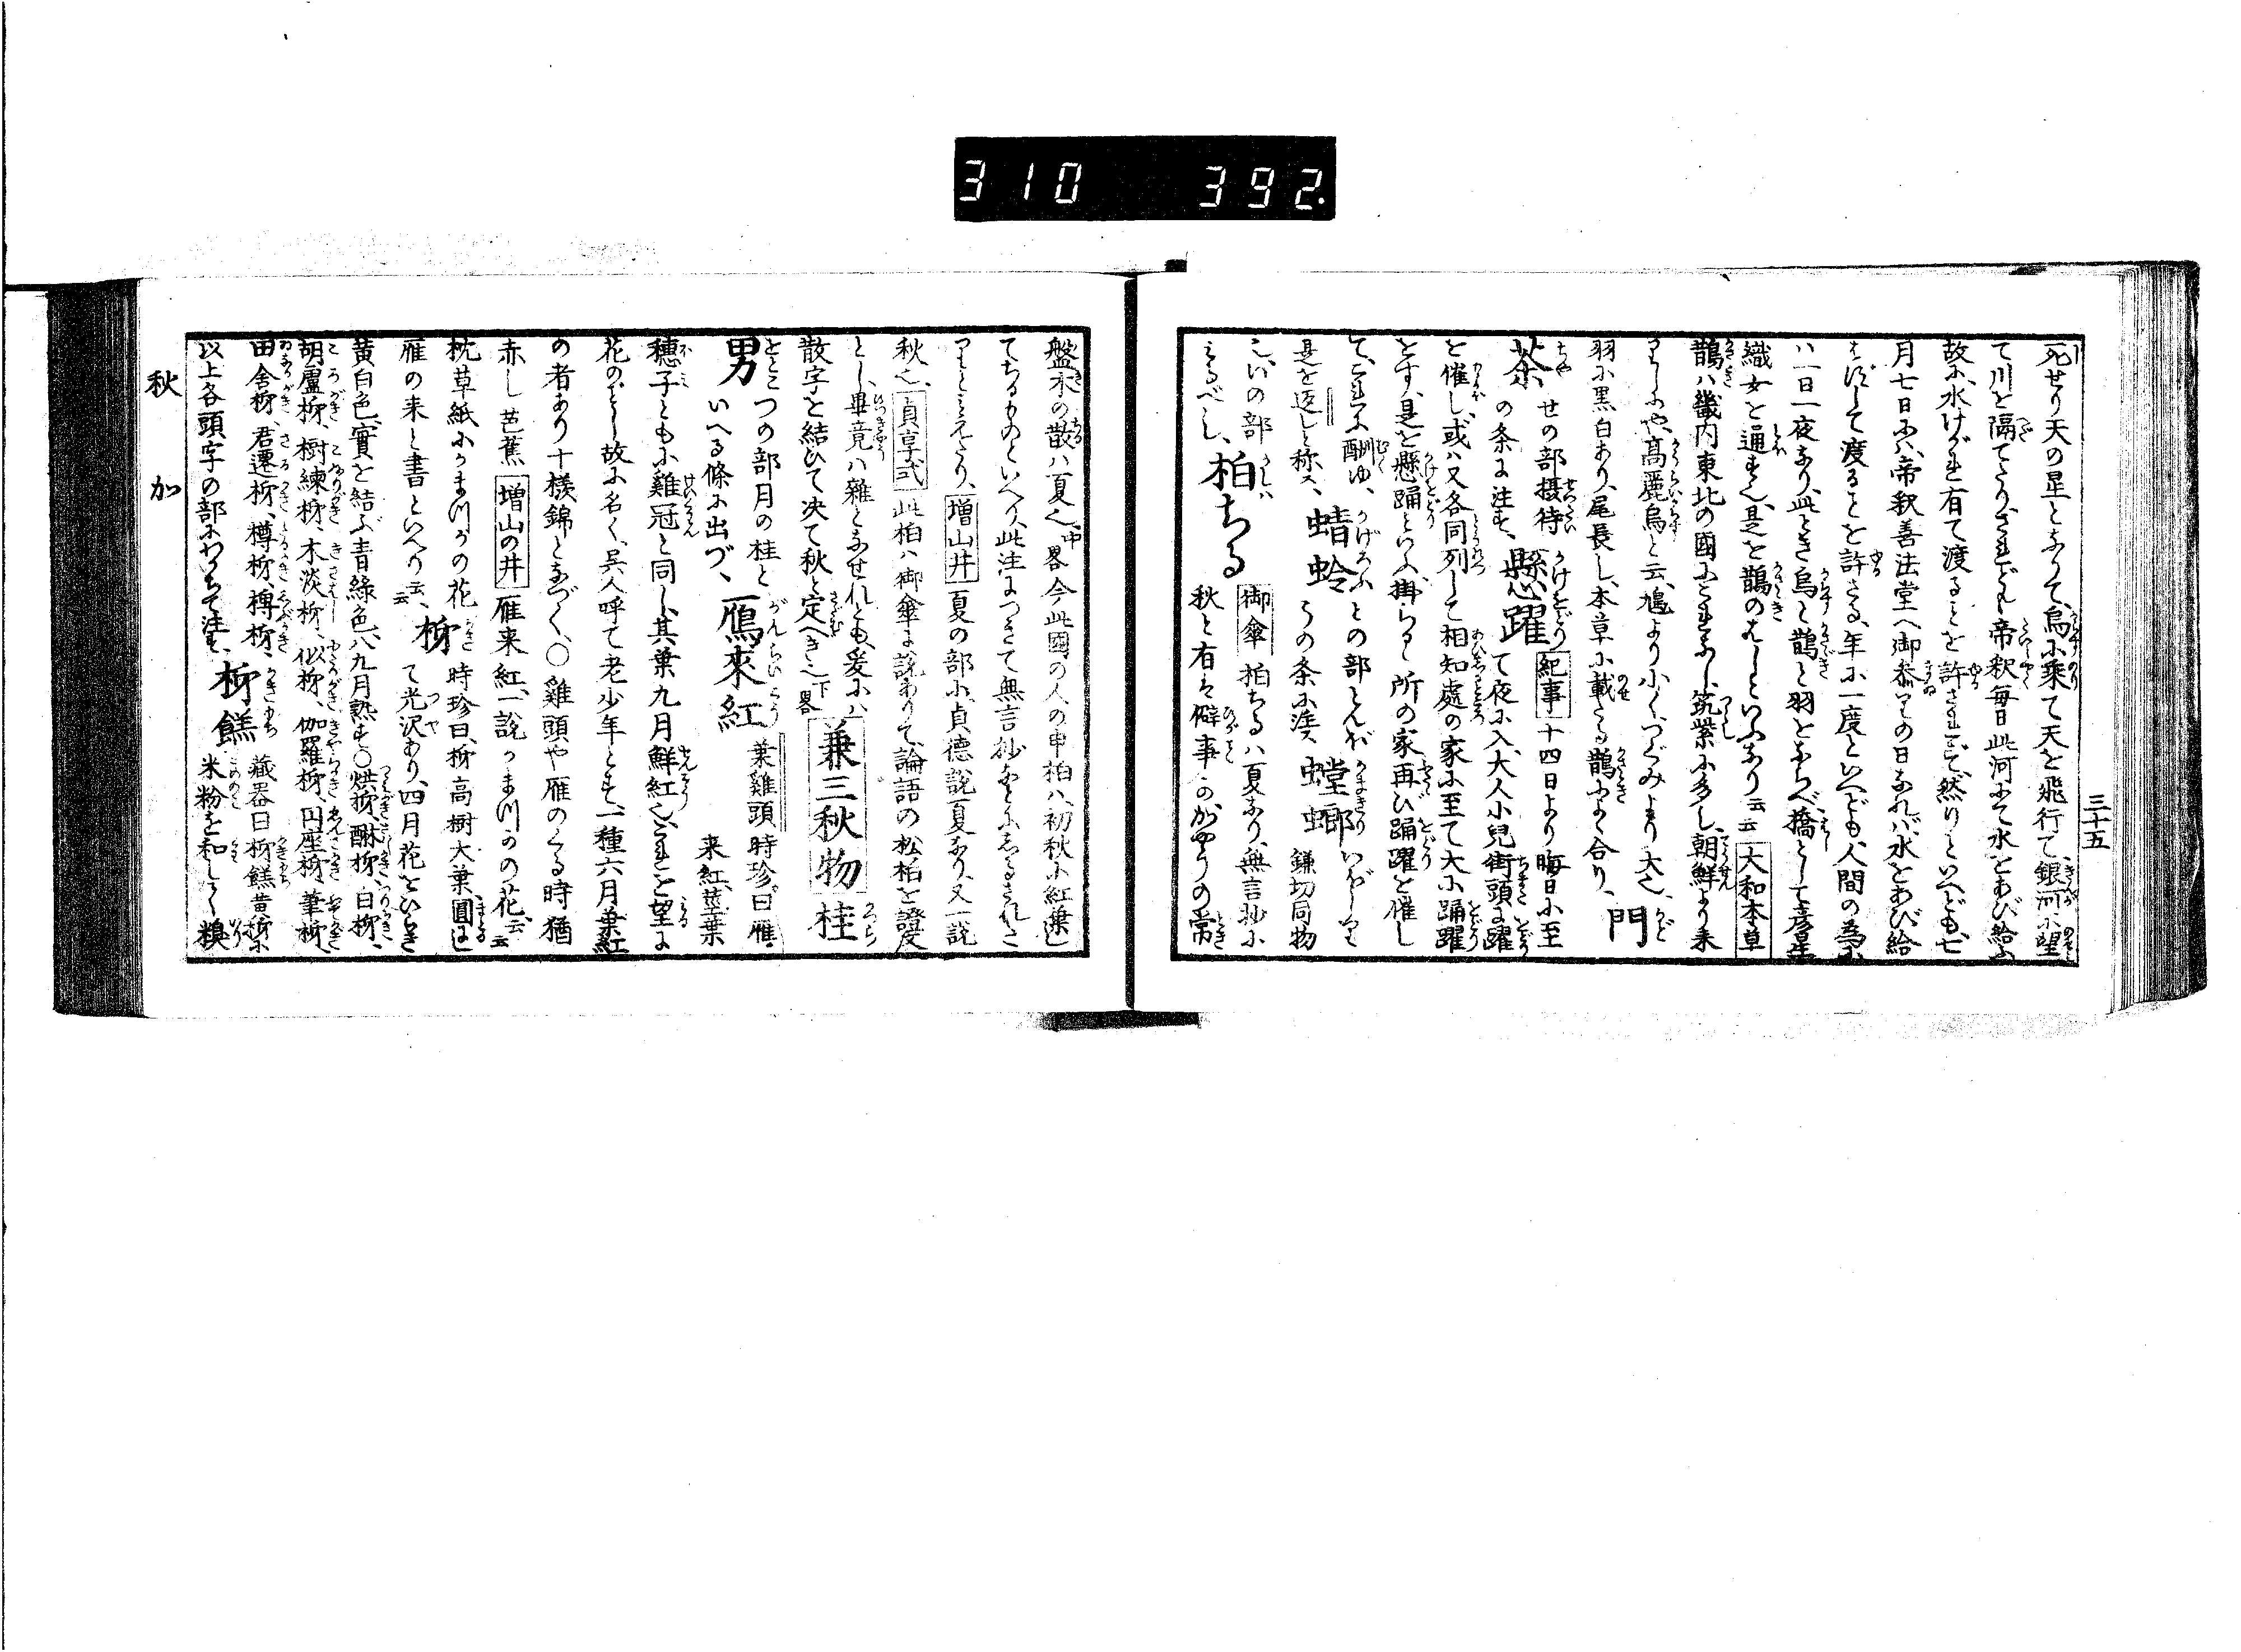 310 392.
三十五
死せり天の星となりて、烏に乗て天を飛行て、銀河に望
て川を隔てたり、されども帝釈毎日此河にて水をあび給ふ
故に、水けがれ有て渡ることを許されず、然りといへども、七
月七日にハ、帝釈善法堂へ御参りの日なれバ、水をあび給
はずして渡ることを許さる、年に一度といへども、人間の為に
ハ一日一夜なり、此とき烏と鵲と羽をならべ橋として彦星
織女を通す也、是を鵲のはしといふなり云云 大和本草
鵲ハ畿内東北の國にこれなし、筑紫に多し、朝鮮より来
りしにや、高麗烏と云、鳩より小く、つぐみより大也、
羽に黒白あり、尾長し、本草に載たる鵲によく合り、 門
茶 せの部摂待の条に注す、 懸躍 紀事 十四日より晦日に至
て夜に入、大人小兒街頭に躍
を催し、或ハ又各同列して相知處の家に至て大に踊躍
をす、是を懸踊といふ、掛らるゝ所の家再び踊躍を催し
て、これに酬ゆ、是を返しと称ス、 蜻蛉 との部とんばうの条に注ス、 螳螂 いぼじり
鎌切同物
也、いの部みるべし、 柏ちる 御傘 柏ちるハ夏なり、無言抄に
秋と有は僻事か、のがやりの常
盤木の散ハ夏也、中畧 今此國の人の申柏ハ、初秋に紅葉し
てちるものといへり、此注につきて無言抄などにしるされた
りとみえたり、 増山井 夏の部に、貞徳説夏なり、又一説
秋也、 貞享式 此柏ハ御傘に説ありて、論語の松柏を證文
とし、畢竟ハ雑となせれども、爰にハ
散字を結ひて決て秋と定へき也下畧 兼三秋物 桂
男 つの部月の桂といへる條に出づ、 鴈來紅 葉雞頭 時珍曰雁
来紅、莖葉
穂子ともに雞冠と同し、其葉九月鮮紅也、これを望に
花のごとし、故に名く、呉人呼て老少年とす、一種六月葉紅
の者あり十様錦となづく、○雞頭や雁のくる時猶
赤し 芭蕉 増山の井 雁来紅、一説かまつかの花、云云
枕草紙にかまつかの花
雁の来と書といへり云云、 柿 時珍曰、柿高樹大葉圓にし
て光沢あり、四月花をひらき
黄白色、實を結ぶ青緑色、八九月熟す○烘柿、醂柿、白柿、
胡盧柿、樹練柿、木淡柿、似柿、伽羅柿、円座柿、筆柿、
田舎柿、君遷柿、樽柿、榑柿、
以上各頭字の部にわかちて注す、 柿餻 蔵器曰柿餻黄柿に
米粉を和してく糗
秋 加